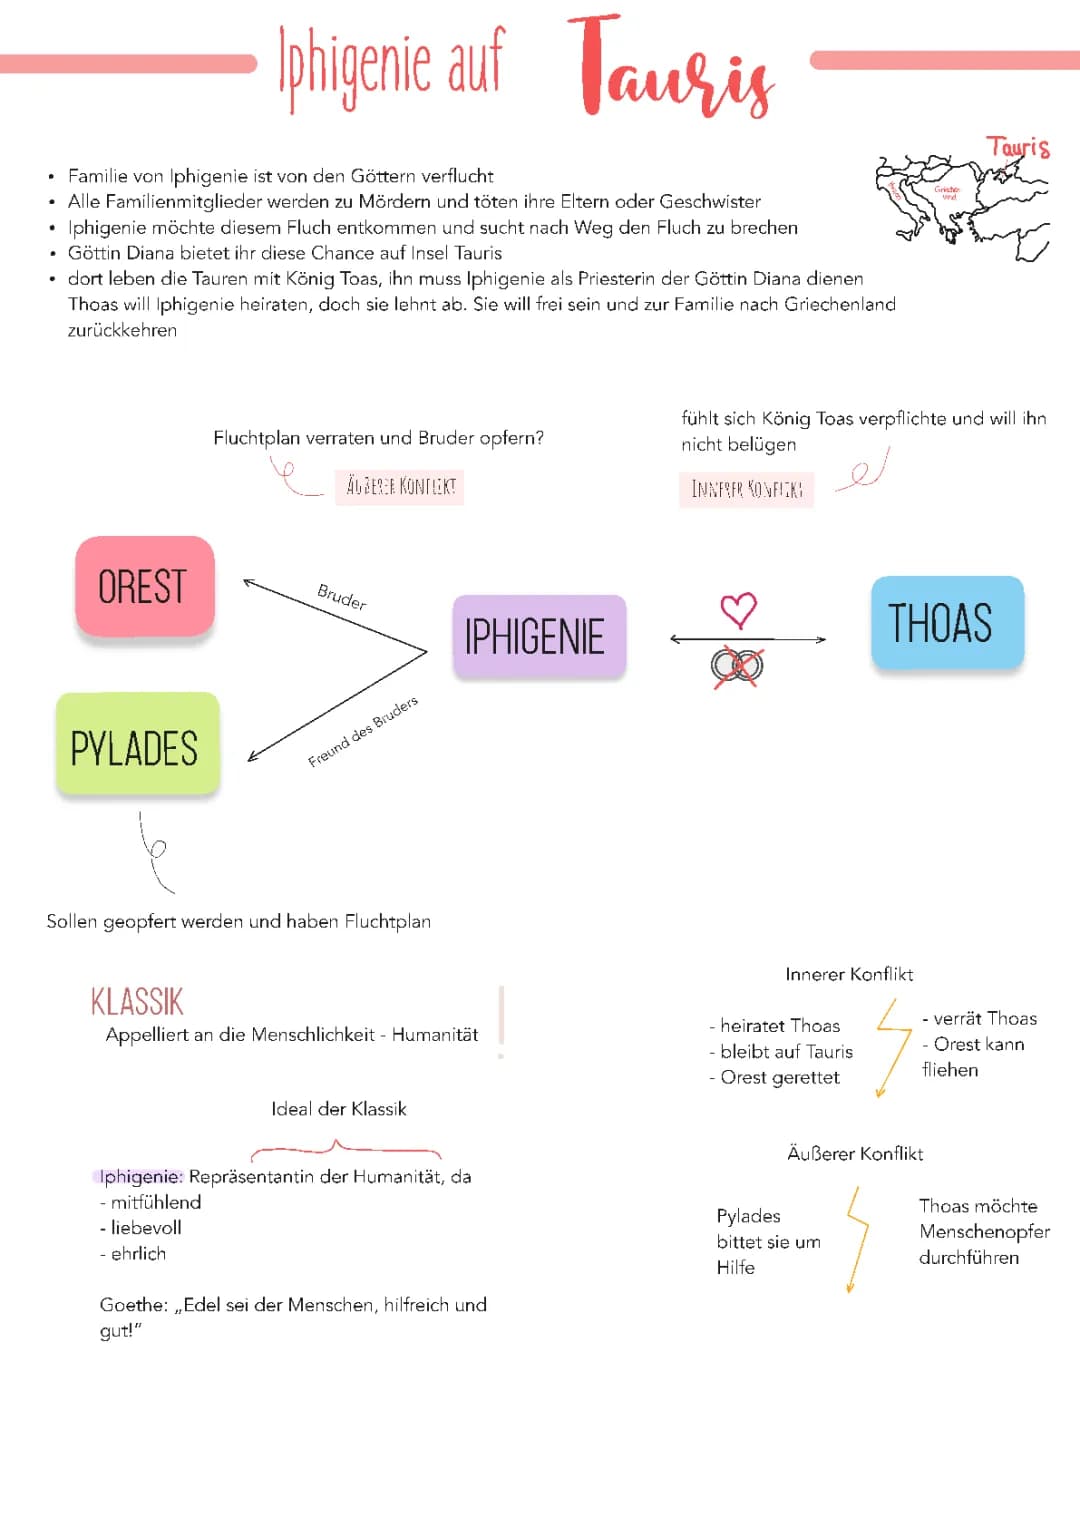 Iphigenie auf Tauris
Tauris
Familie von Iphigenie ist von den Göttern verflucht
Alle Familienmitglieder werden zu Mördern und töten ihre Eltern oder Geschwister
Iphigenie möchte diesem Fluch entkommen und sucht nach Weg den Fluch zu brechen
Göttin Diana bietet ihr diese Chance auf Insel Tauris
dort leben die Tauren mit König Toas, ihn muss Iphigenie als Priesterin der Göttin Diana dienen
Thoas will Iphigenie heiraten, doch sie lehnt ab. Sie will frei sein und zur Familie nach Griechenland
zurückkehren
fühlt sich König Toas verpflichte und will ihn
nicht belügen
Fluchtplan verraten und Bruder opfern?
ÄUßERER KONFLIKT
INNERER KONFLIKT
OREST
Bruder
IPHIGENIE
THOAS
PYLADES
Freund des Bruders
Sollen geopfert werden und haben Fluchtplan
KLASSIK
Appelliert an die Menschlichkeit - Humanität
Ideal der Klassik
Iphigenie: Repräsentantin der Humanität, da
- mitfühlend
- liebevoll
- ehrlich
Goethe: „Edel sei der Menschen, hilfreich und
gut!"
Innerer Konflikt
- heiratet Thoas
- bleibt auf Tauris
- Orest gerettet
- verrät Thoas
- Orest kann
fliehen
Äußerer Konflikt
Pylades
bittet sie um
Hilfe
Thoas möchte
Menschenopfer
durchführen